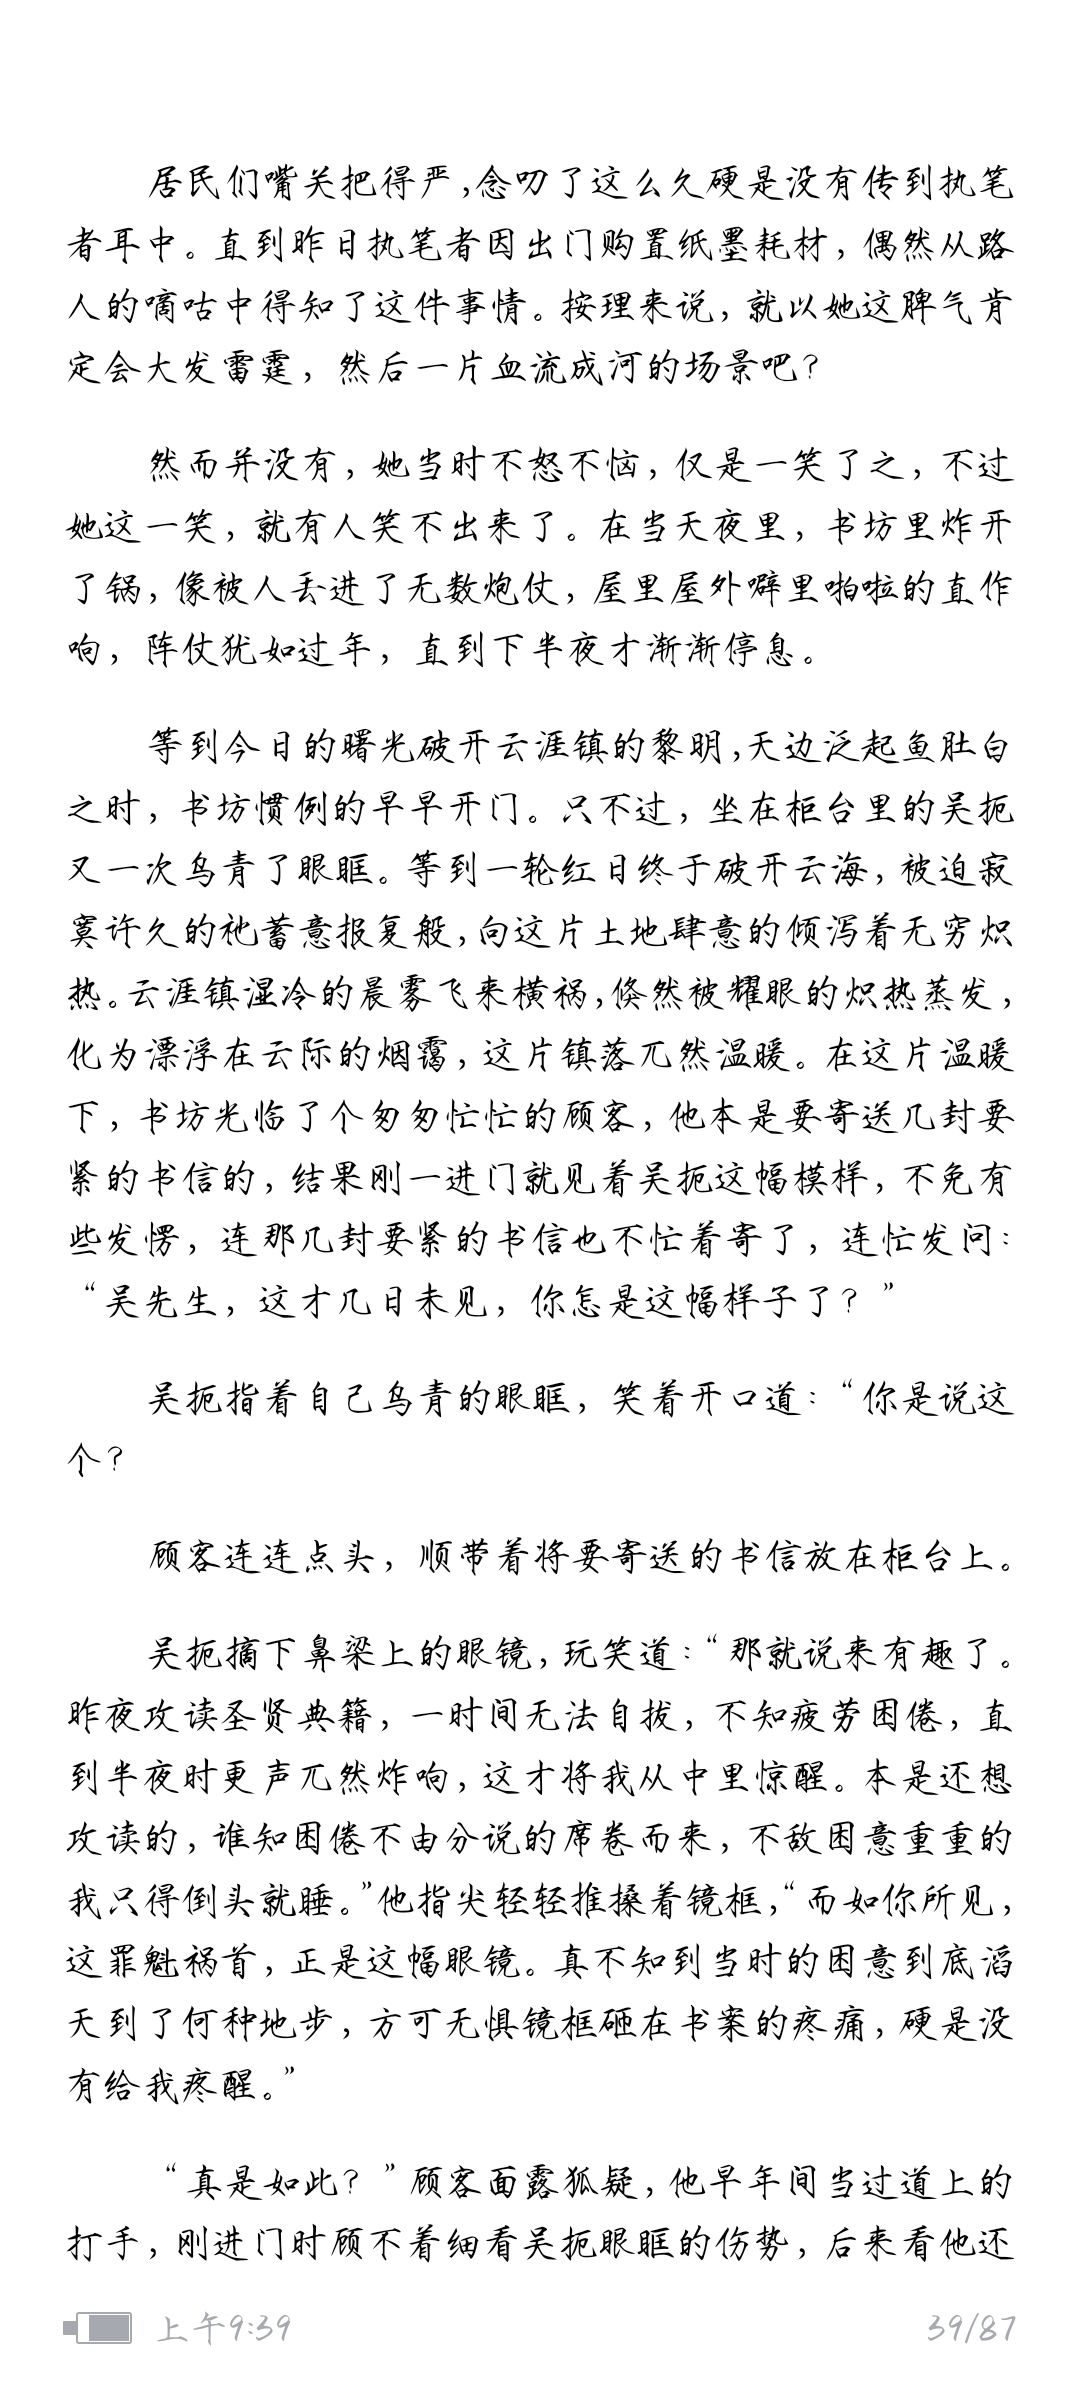 居民们嘴关把得严，念叨了这么久硬是没有传到执笔
者耳中。直到昨日执笔者因出门购置纸墨耗材，偶然从路
人的嘀咕中得知了这件事情。按理来说，就以她这脾气肯
定会大发雷霆，然后一片血流成河的场景吧？
然而并没有，她当时不怒不恼，仅是一笑了之，不过
她这一笑，就有人笑不出来了。在当天夜里，书坊里炸开
了锅，像被人丢进了无数炮仗，屋里屋外噼里啪啦的直作
响，阵仗犹如过年，直到下半夜才渐渐停息。
等到今日的曙光破开云涯镇的黎明，天边泛起鱼肚白
之时，书坊惯例的早早开门。只不过，坐在柜台里的吴扼
又一次乌青了眼眶。等到一轮红日终于破开云海，被迫寂
寞许久的祂蓄意报复般，向这片土地肆意的倾泻着无穷炽
热。云涯镇湿冷的晨雾飞来横祸，倏然被耀眼的炽热蒸发，
化为漂浮在云际的烟霭，这片镇落兀然温暖。在这片温暖
下，书坊光临了个匆匆忙忙的顾客，他本是要寄送几封要
紧的书信的，结果刚一进门就见着吴扼这幅模样，不免有
些发愣，连那几封要紧的书信也不忙着寄了，连忙发问：
“吴先生，这才几日未见，你怎是这幅样子了？”
吴扼指着自己乌青的眼眶，笑着开口道：“你是说这
个？
顾客连连点头，顺带着将要寄送的书信放在柜台上。
吴扼摘下鼻梁上的眼镜，玩笑道：“那就说来有趣了。
昨夜攻读圣贤典籍，一时间无法自拔，不知疲劳困倦，直
到半夜时更声兀然炸响，这才将我从中里惊醒。本是还想
攻读的，谁知困倦不由分说的席卷而来，不敌困意重重的
我只得倒头就睡。”他指尖轻轻推搡着镜框，“而如你所见，
这罪魁祸首，正是这幅眼镜。真不知到当时的困意到底滔
天到了何种地步，方可无惧镜框砸在书案的疼痛，硬是没
有给我疼醒。”
“真是如此？”顾客面露狐疑，他早年间当过道上的
打手，刚进门时顾不着细看吴扼眼眶的伤势，后来看他还
上午9:39
39/87